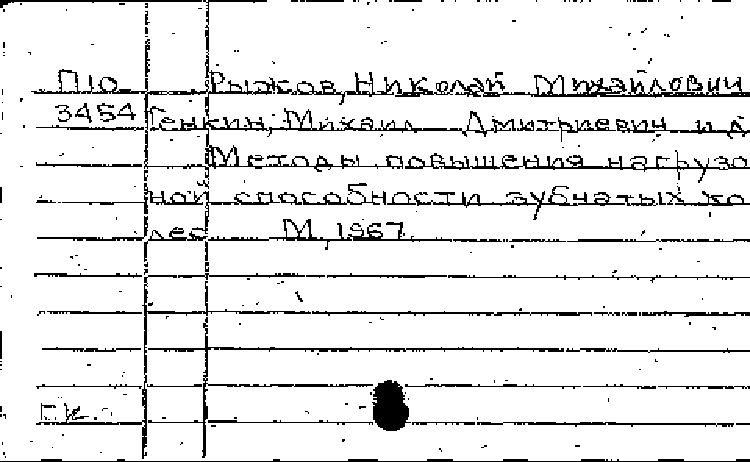 П10 Рыжов, Николай Михайлович
3454 Генкин, Михаил Дмитриевич и д
Методы повышения нагрузо
ной способности зубчатых ко
лес М. 1967.
Г.К.